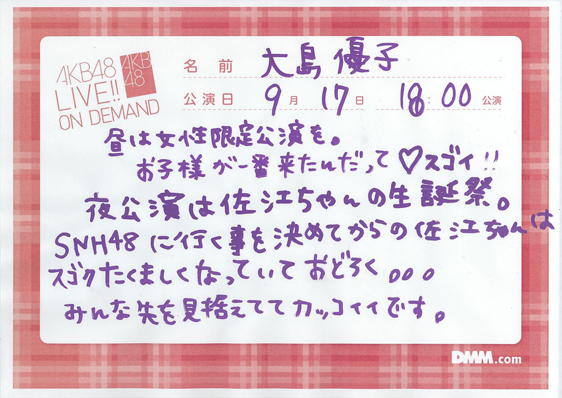 AKB48
LIVE!!
ON DEMAND
AKB
48
名前 大島優子
公演日 9月17日 18:00公演
昼は女性限定公演を。
お子様が一番来たんだって♡スゴイ!!
夜公演は佐江ちゃんの生誕祭。
SNH48に行く事を決めてからの佐江ちゃんは
スゴクたくましくなっていておどろく。。。
みんな先を見据えててカッコイイです。
DMM.com